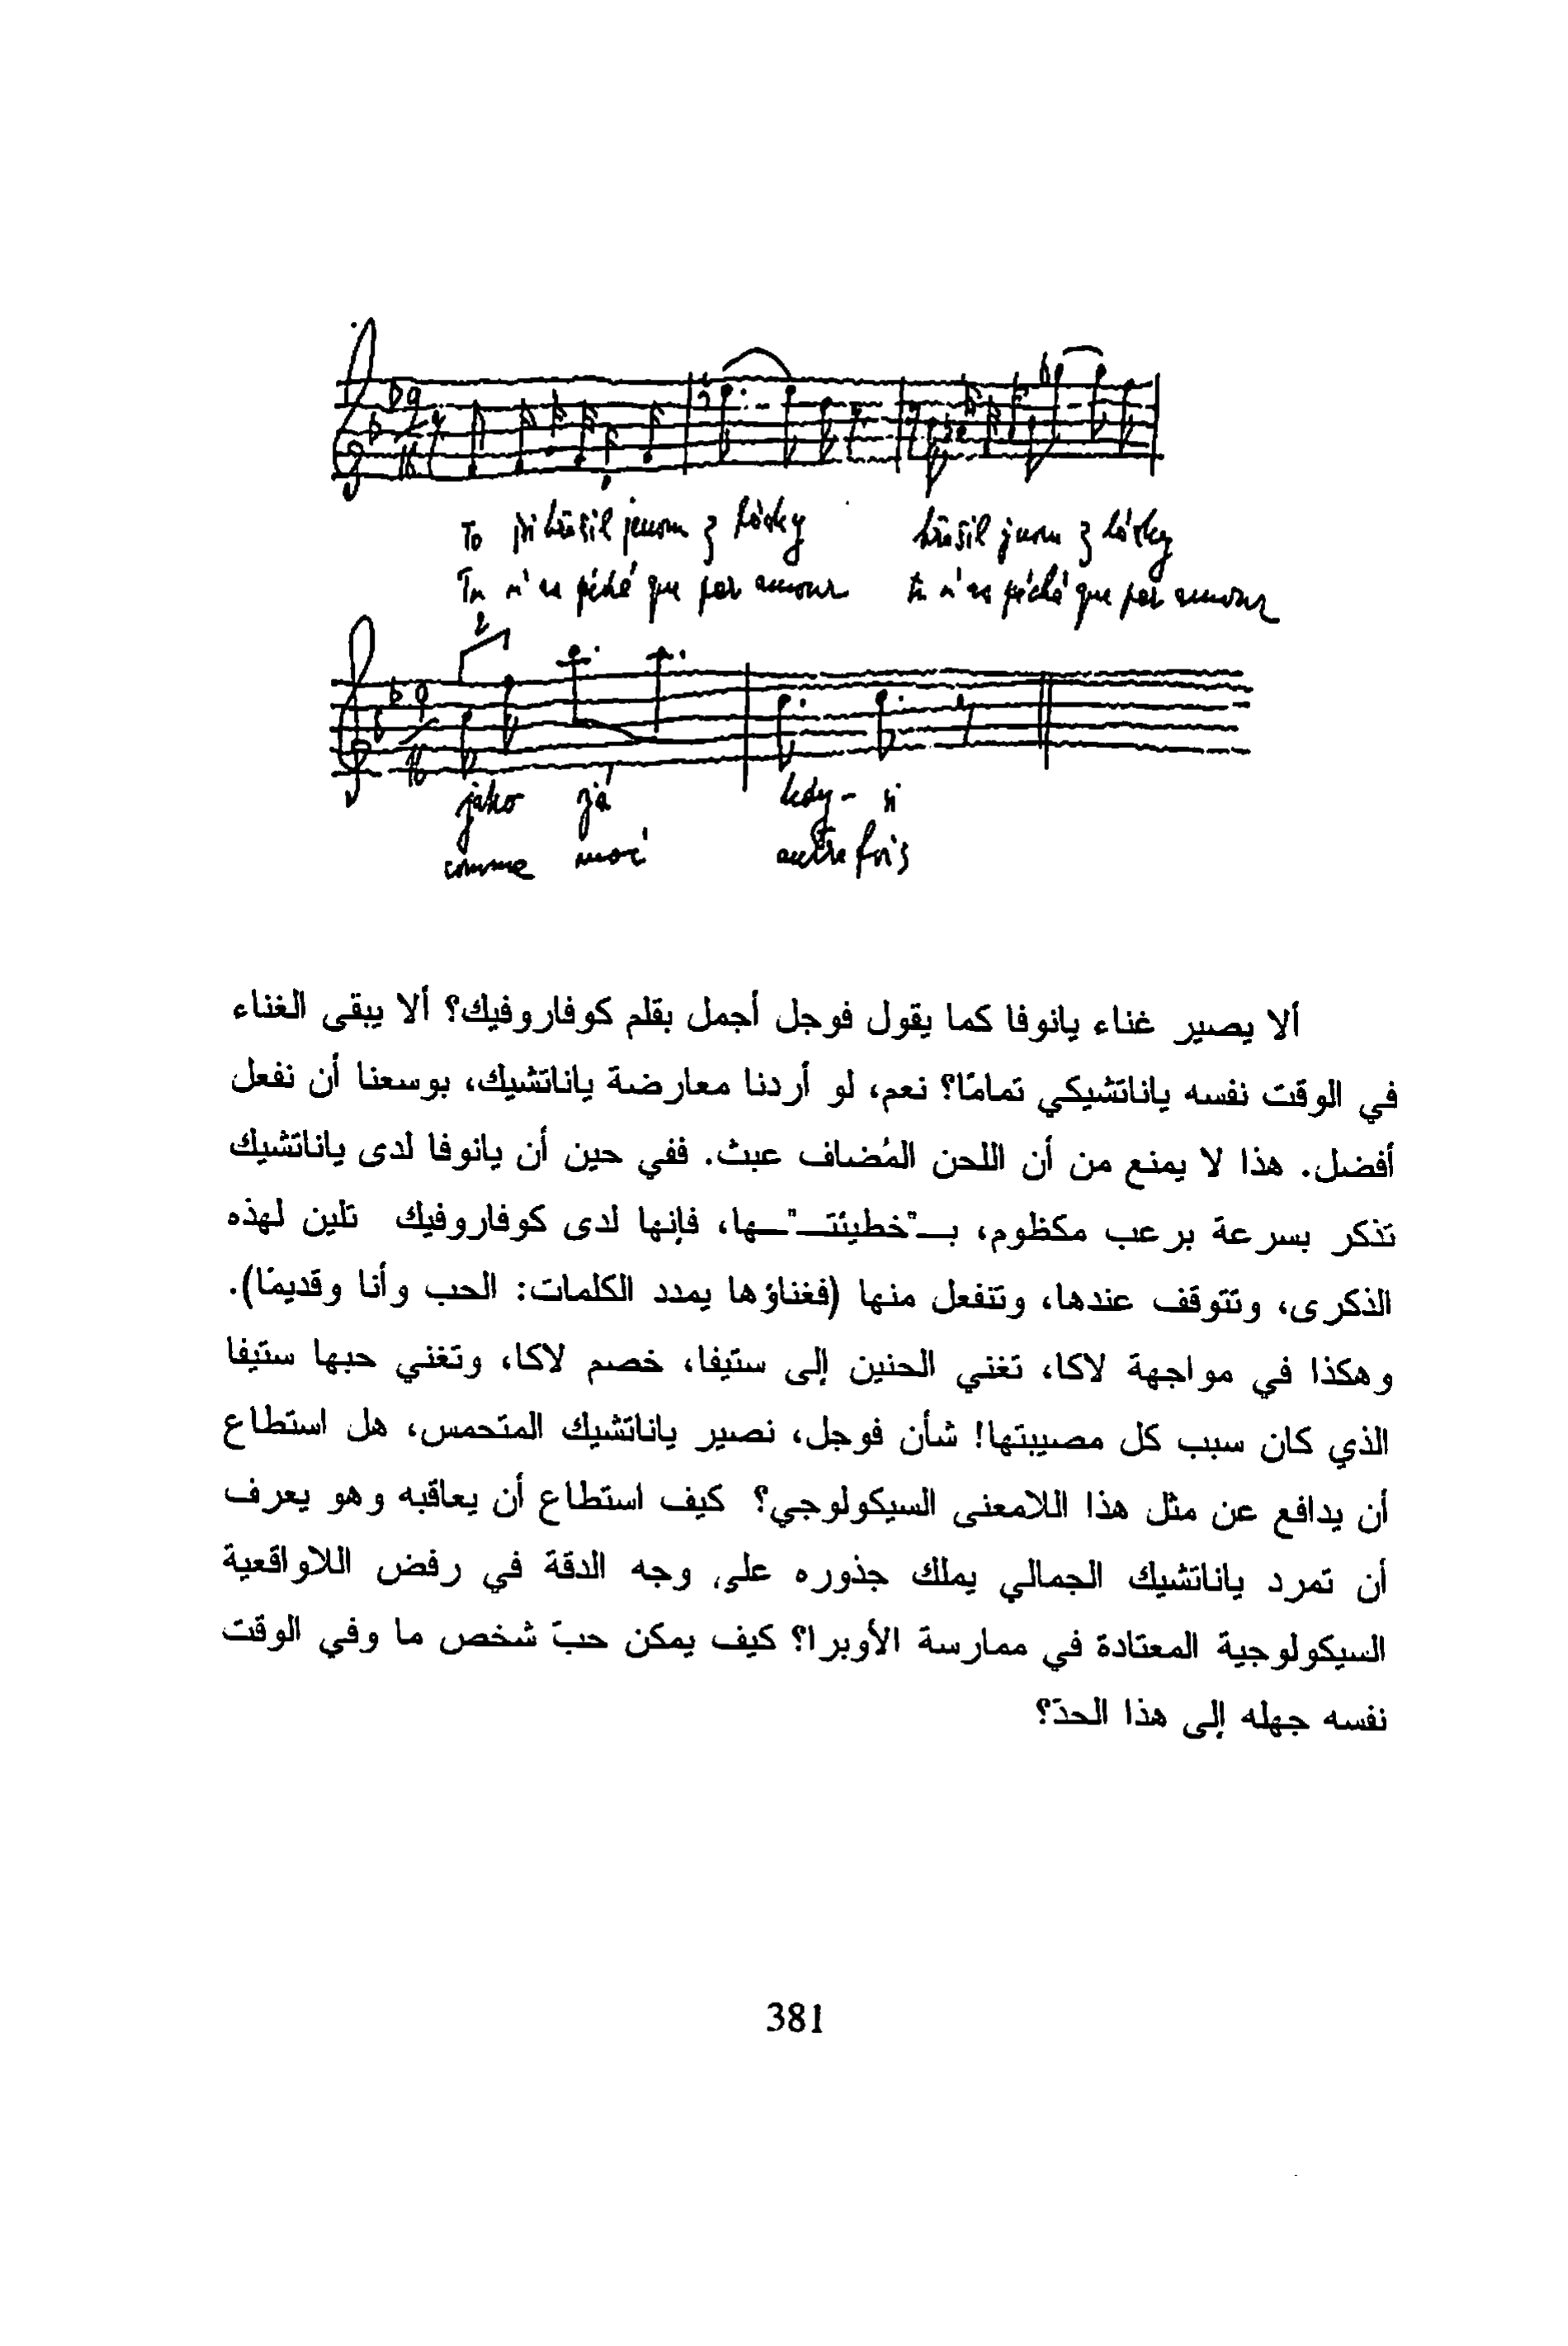 Tu n'as péché que par amour tu n'as péché que par amour
jako já kdy-si
comme moi autrefois
ألا يصير غناء يانوفا كما يقول فوجل أجمل بقلم كوفاروفيك؟ ألا يبقى الغناء
في الوقت نفسه ياناتشيكي تمامًا؟ نعم، لو أردنا معارضة ياناتشيك، بوسعنا أن نفعل
أفضل. هذا لا يمنع من أن اللحن المُضاف عبث. ففي حين أن يانوفا لدى ياناتشيك
تذكر بسرعة برعب مكظوم، بـ"خطيئتـ"ـها، فإنها لدى كوفاروفيك تلين لهذه
الذكرى، وتتوقف عندها، وتنفعل منها (فغناؤها يمدد الكلمات: الحب وأنا وقديمًا).
وهكذا في مواجهة لاكا، تغني الحنين إلى ستيفا، خصم لاكا، وتغني حبها ستيفا
الذي كان سبب كل مصيبتها! شأن فوجل، نصير ياناتشيك المتحمس، هل استطاع
أن يدافع عن مثل هذا اللامعنى السيكولوجي؟ كيف استطاع أن يعاقبه وهو يعرف
أن تمرد ياناتشيك الجمالي يملك جذوره على وجه الدقة في رفض اللاواقعية
السيكولوجية المعتادة في ممارسة الأوبرا؟ كيف يمكن حبّ شخص ما وفي الوقت
نفسه جهله إلى هذا الحدّ؟
381